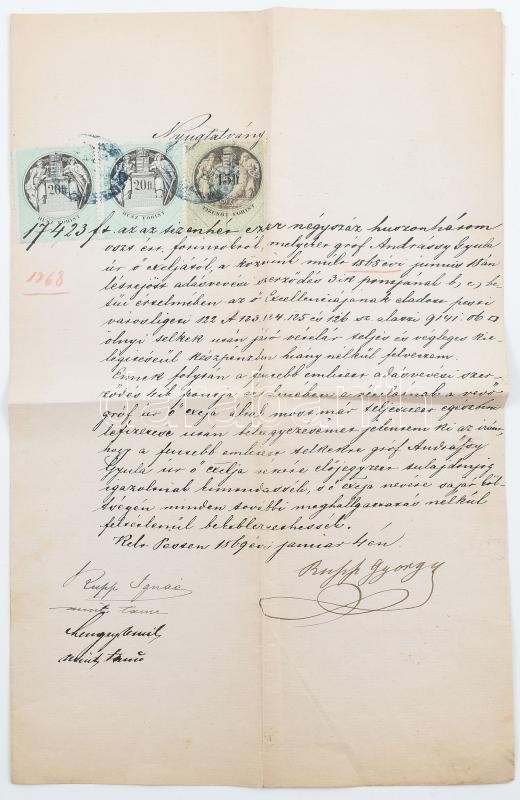 Nyugtatvány
20 ft. 20 ft. 15 ft
HUSZ FORINT HUSZ FORINT TIZENÖT FORINT
17423 ft az az tizenhét ezer négyszáz huszonhárom
oszt. ért. forintokról, melyeket gróf Andrássy Gyula
úr ő Exljától, a közöttünk múlt 1868 évi junius 18án
1868
létrejött adásvevési szerződés 3ik pontjának b, c, be
tüi értelmében az ő Excellenciájának eladott pesti
városligeti 122 A 123. 124. 125 és 126 sz. alatti 9141. 06
ölnyi telkek után járó vételár teljes és végleges kie
légitéseül készpénzben hiány nélkül felvettem.
Ennek folytán a fentebb emlitett adásvevési szer
ződés 4ik pontja értelmében a vételárnak a vevő
gróf úr ő Exlja által mostmár teljesen
lefizetése után beleegyezésemet jelentem ki az iránt,
hogy a fentebb emlitett telkekre gróf Andrássy
Gyula úr ő Exlja nevére előjegyzett tulajdonjog
igazoltnak kimondassék, s ő Exlja nevére saját költ
ségén minden további meghallgatásom nélkül
feltétlenül bekebleztethessék.
Kelt Pesten 1869 évi január 4én
Rupp György
Rupp Ignác
mint tanu
mint tanú
darabanth